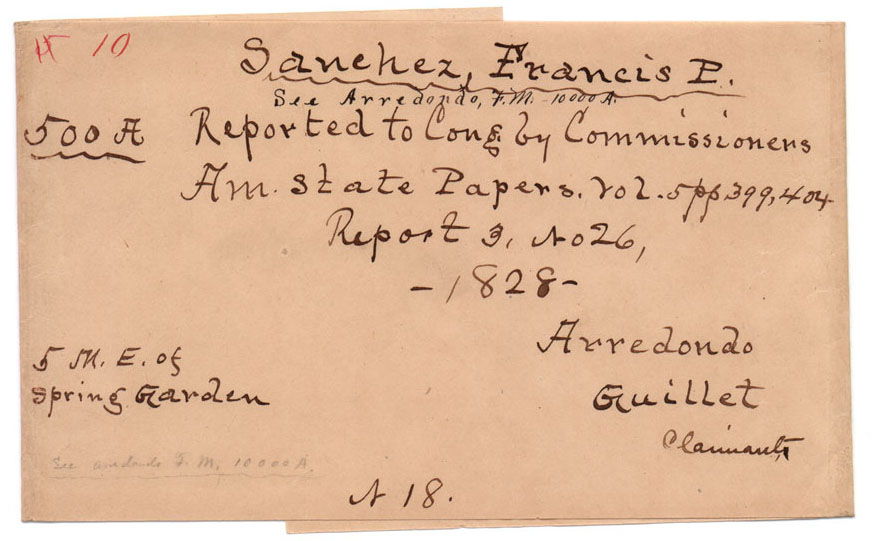 10
Sanchez, Francis P.
See Arredondo, F.M. 10000 A.
500 A Reported to Cong by Commissioners
Am. State Papers. Vol. 5 pp 399, 404
Report 3, No 26,
- 1828 -
Arredondo
5 M. E. of
Guillet
Spring Garden
Claimants
See arredondo F. M. 10000 A.
N 18.